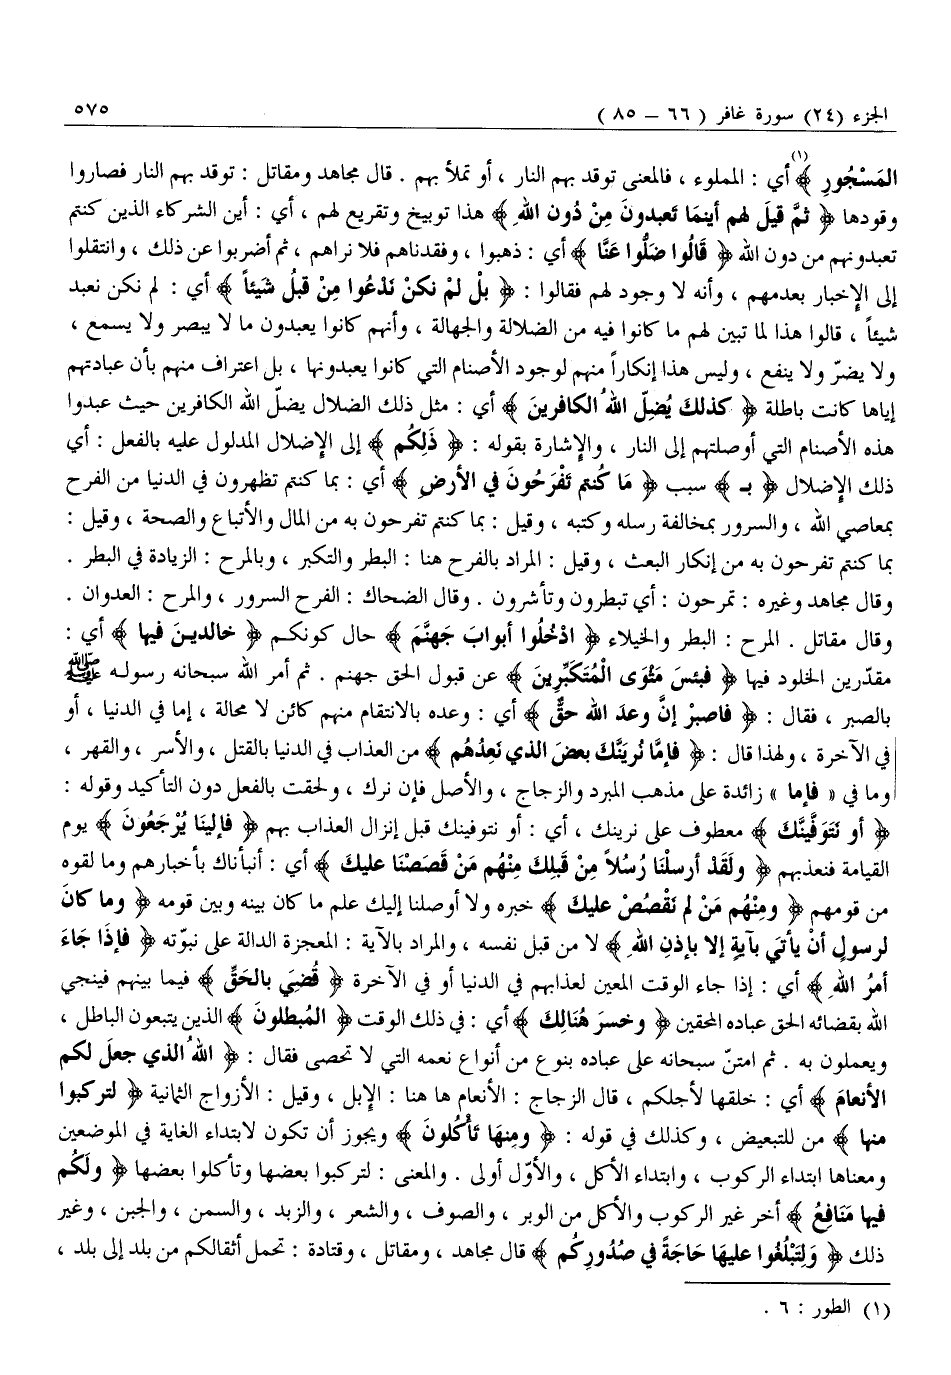 الجزء (٢٤) سورة غافر ( ٦٦ – ٨٥ ) ٥٧٥
المَسْجُورِ ﴾(١) أي : المملوء ، فالمعنى توقد بهم النار ، أو تملأ بهم . قال مجاهد ومقاتل : توقد بهم النار فصاروا
وقودها ﴿ ثمَّ قيلَ لهم أينمَا تَعبدونَ مِنْ دُونِ اللهِ ﴾ هذا توبيخ وتقريع لهم ، أي : أين الشركاء الذين كنتم
تعبدونهم من دون الله ﴿ قَالُوا ضَلُّوا عَنَّا ﴾ أي : ذهبوا ، وفقدناهم فلا نراهم ، ثم أضربوا عن ذلك ، وانتقلوا
إلى الإخبار بعدمهم ، وأنه لا وجود لهم فقالوا : ﴿ بلْ لمْ نكنْ نَدْعُوا مِنْ قبلُ شيئاً ﴾ أي : لم نكن نعبد
شيئاً ، قالوا هذا لما تبين لهم ما كانوا فيه من الضلالة والجهالة ، وأنهم كانوا يعبدون ما لا يبصر ولا يسمع ،
ولا يضرّ ولا ينفع ، وليس هذا إنكاراً منهم لوجود الأصنام التي كانوا يعبدونها ، بل اعتراف منهم بأن عبادتهم
إياها كانت باطلة ﴿ كذلكَ يُضِلُّ اللهُ الكافرينَ ﴾ أي : مثل ذلك الضلال يضلّ الله الكافرين حيث عبدوا
هذه الأصنام التي أوصلتهم إلى النار ، والإشارة بقوله : ﴿ ذَلِكُم ﴾ إلى الإضلال المدلول عليه بالفعل : أي
ذلك الإضلال ﴿ بـ ﴾ سبب ﴿ مَا كُنتم تَفْرَحُونَ في الأرضِ ﴾ أي : بما كنتم تظهرون في الدنيا من الفرح
بمعاصي الله ، والسرور بمخالفة رسله وكتبه ، وقيل : بما كنتم تفرحون به من المال والأتباع والصحة ، وقيل :
بما كنتم تفرحون به من إنكار البعث ، وقيل : المراد بالفرح هنا : البطر والتكبر ، وبالمرح : الزيادة في البطر .
وقال مجاهد وغيره : تمرحون : أي تبطرون وتأشرون . وقال الضحاك : الفرح السرور ، والمرح : العدوان .
وقال مقاتل . المرح : البطر والخيلاء ﴿ ادْخُلُوا أبوابَ جَهنَّمَ ﴾ حال كونكم ﴿ خالدينَ فيها ﴾ أي :
مقدّرين الخلود فيها ﴿ فبئسَ مَثْوَى الْمُتَكبِّرِينَ ﴾ عن قبول الحق جهنم . ثم أمر الله سبحانه رسوله ﷺ
بالصبر ، فقال : ﴿ فَاصبرْ إنَّ وعدَ الله حقٌّ ﴾ أي : وعده بالانتقام منهم كائن لا محالة ، إما في الدنيا ، أو
في الآخرة ، ولهذا قال : ﴿ فإمَّا نُرِيَنَّكَ بعضَ الذي نَعِدُهُم ﴾ من العذاب في الدنيا بالقتل ، والأسر ، والقهر ،
وما في « فإما » زائدة على مذهب المبرد والزجاج ، والأصل فإن نرك ، ولحقت بالفعل دون التأكيد وقوله :
﴿ أو نَتَوَفَّينَّكَ ﴾ معطوف على نرينك ، أي : أو نتوفينك قبل إنزال العذاب بهم ﴿ فإلينَا يُرْجَعُونَ ﴾ يوم
القيامة فنعذبهم ﴿ ولَقَدْ أرسلْنَا رُسُلاً مِنْ قَبلِكَ مِنْهُم مَنْ قَصَصْنَا عليكَ ﴾ أي : أنبأناك بأخبارهم وما لقوه
من قومهم ﴿ ومِنْهُم مَنْ لم نَقْصُصْ عليكَ ﴾ خبره ولا أوصلنا إليك علم ما كان بينه وبين قومه ﴿ وما كانَ
لرسولٍ أنْ يأتيَ بآيةٍ إلا بإذنِ اللهِ ﴾ لا من قبل نفسه ، والمراد بالآية : المعجزة الدالة على نبوّته ﴿ فإذَا جَاءَ
أمرُ اللهِ ﴾ أي : إذا جاء الوقت المعين لعذابهم في الدنيا أو في الآخرة ﴿ قُضيَ بالحَقِّ ﴾ فيما بينهم فينجي
الله بقضائه الحق عباده المحقين ﴿ وخسرَ هُنَالِكَ ﴾ أي : في ذلك الوقت ﴿ المُبطلونَ ﴾ الذين يتبعون الباطل ،
ويعملون به . ثم امتنّ سبحانه على عباده بنوع من أنواع نعمه التي لا تحصى فقال : ﴿ اللهُ الذي جعلَ لكم
الأنعامَ ﴾ أي : خلقها لأجلكم ، قال الزجاج : الأنعام ها هنا : الإبل ، وقيل : الأزواج الثمانية ﴿ لتركبوا
منها ﴾ من للتبعيض ، وكذلك في قوله : ﴿ ومِنهَا تَأْكُلونَ ﴾ ويجوز أن تكون لابتداء الغاية في الموضعين
ومعناها ابتداء الركوب ، وابتداء الأكل ، والأوّل أولى . والمعنى : لتركبوا بعضها وتأكلوا بعضها ﴿ ولَكُم
فيها مَنَافِعُ ﴾ أخر غير الركوب والأكل من الوبر ، والصوف ، والشعر ، والزبد ، والسمن ، والجبن ، وغير
ذلك ﴿ وَلِتَبْلُغُوا عليهَا حَاجَةً في صُدُورِكُم ﴾ قال مجاهد ، ومقاتل ، وقتادة : تحمل أثقالكم من بلد إلى بلد ،
(١) الطور : ٦ .